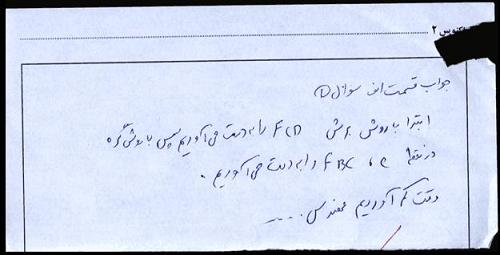 ۲
جواب قسمت الف سوال ①
ابتدا با روش برش FCD را بدست می آوریم سپس با روش گره
در نقطه C ، FBC را بدست می آوریم .
وقت کم آوردیم مهندس .....